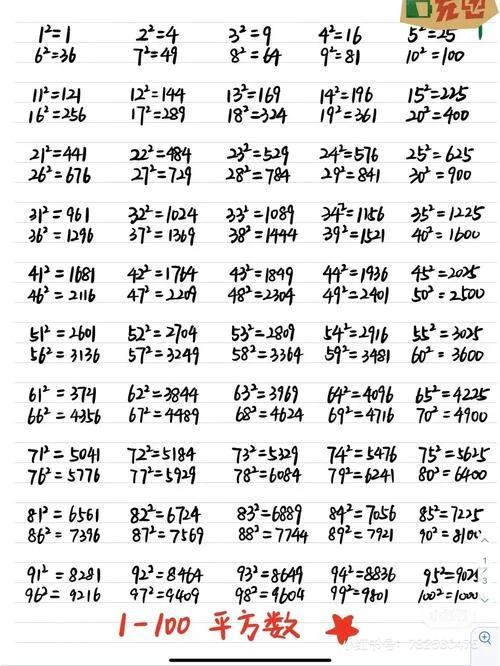 1²=1 2²=4 3²=9 4²=16 5²=25
6²=36 7²=49 8²=64 9²=81 10²=100
11²=121 12²=144 13²=169 14²=196 15²=225
16²=256 17²=289 18²=324 19²=361 20²=400
21²=441 22²=484 23²=529 24²=576 25²=625
26²=676 27²=729 28²=784 29²=841 30²=900
31²=961 32²=1024 33²=1089 34²=1156 35²=1225
36²=1296 37²=1369 38²=1444 39²=1521 40²=1600
41²=1681 42²=1764 43²=1849 44²=1936 45²=2025
46²=2116 47²=2209 48²=2304 49²=2401 50²=2500
51²=2601 52²=2704 53²=2809 54²=2916 55²=3025
56²=3136 57²=3249 58²=3364 59²=3481 60²=3600
61²=3721 62²=3844 63²=3969 64²=4096 65²=4225
66²=4356 67²=4489 68²=4624 69²=4716 70²=4900
71²=5041 72²=5184 73²=5329 74²=5476 75²=5625
76²=5776 77²=5929 78²=6084 79²=6241 80²=6400
81²=6561 82²=6724 83²=6889 84²=7056 85²=7225
86²=7396 87²=7569 88²=7744 89²=7921 90²=8100
91²=8281 92²=8464 93²=8649 94²=8836 95²=9025
96²=9216 97²=9409 98²=9604 99²=9801 100²=1000
1/3
1-100 平方数
小红书号: